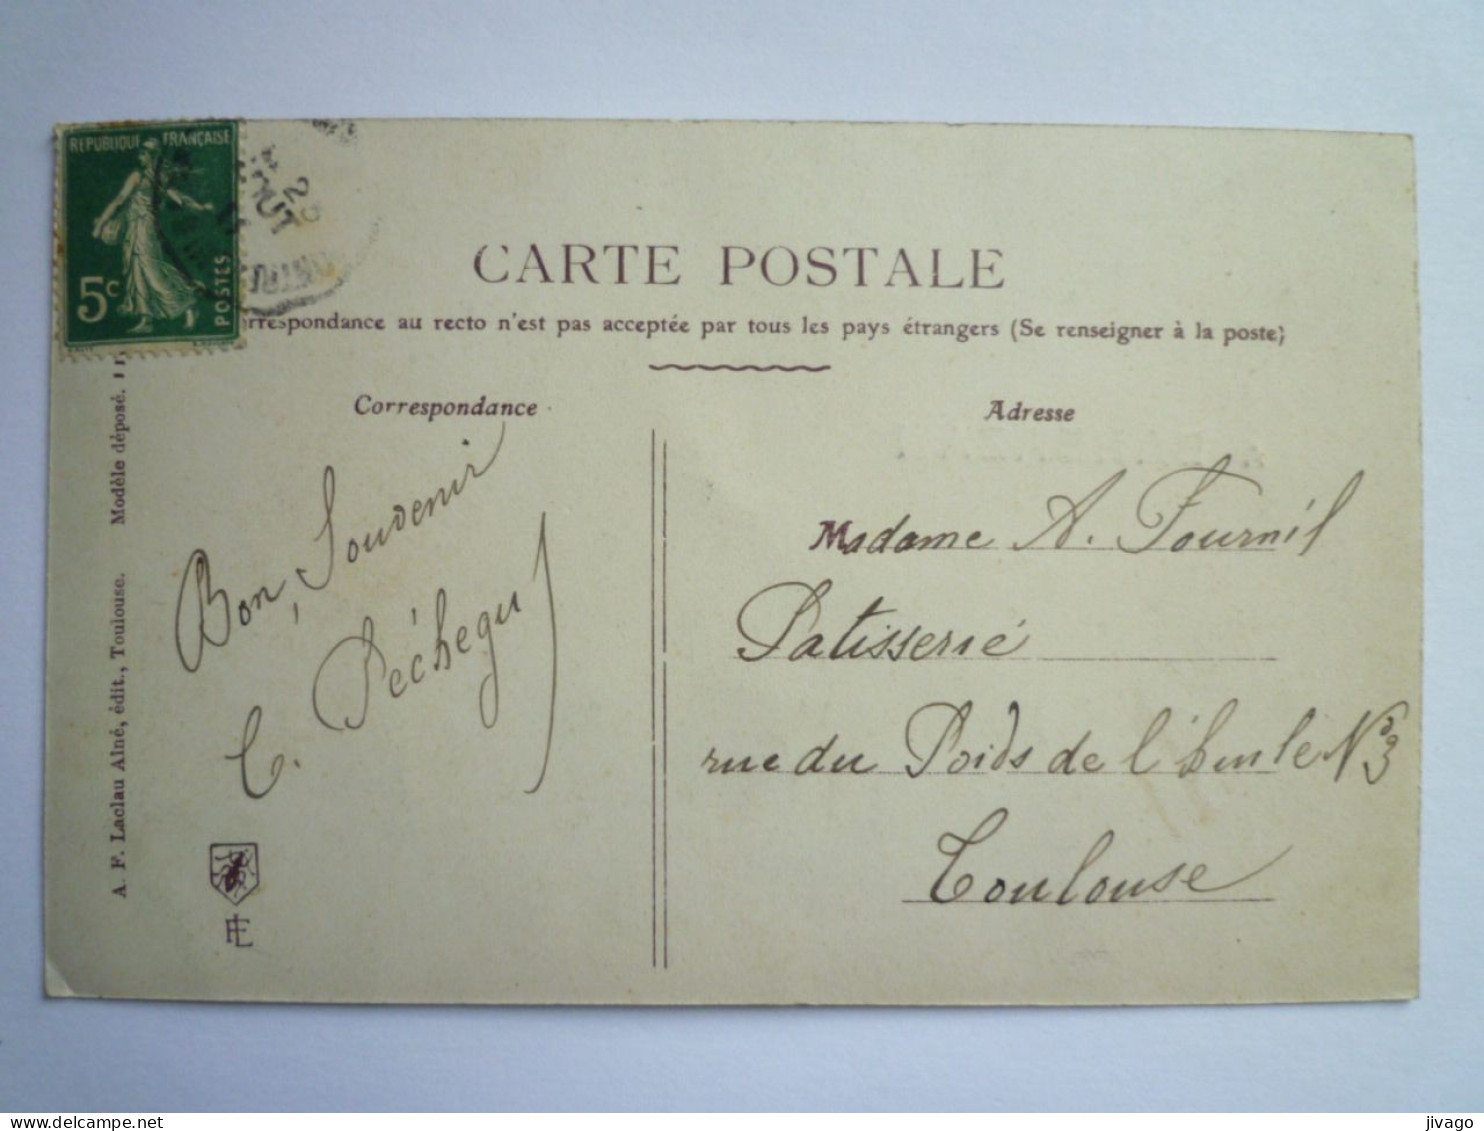 REPUBLIQUE FRANÇAISE
5c
POSTES
CARTE POSTALE
rrespondance au recto n'est pas acceptée par tous les pays étrangers (Se renseigner à la poste)
Correspondance
Adresse
Bon Souvenir
C. Péchegu
Madame A. Fournil
Patisserie
rue du Poids de l'huile N° 3
Toulouse
A. F. Laclau Aîné, édit., Toulouse. Modèle déposé.
jivago